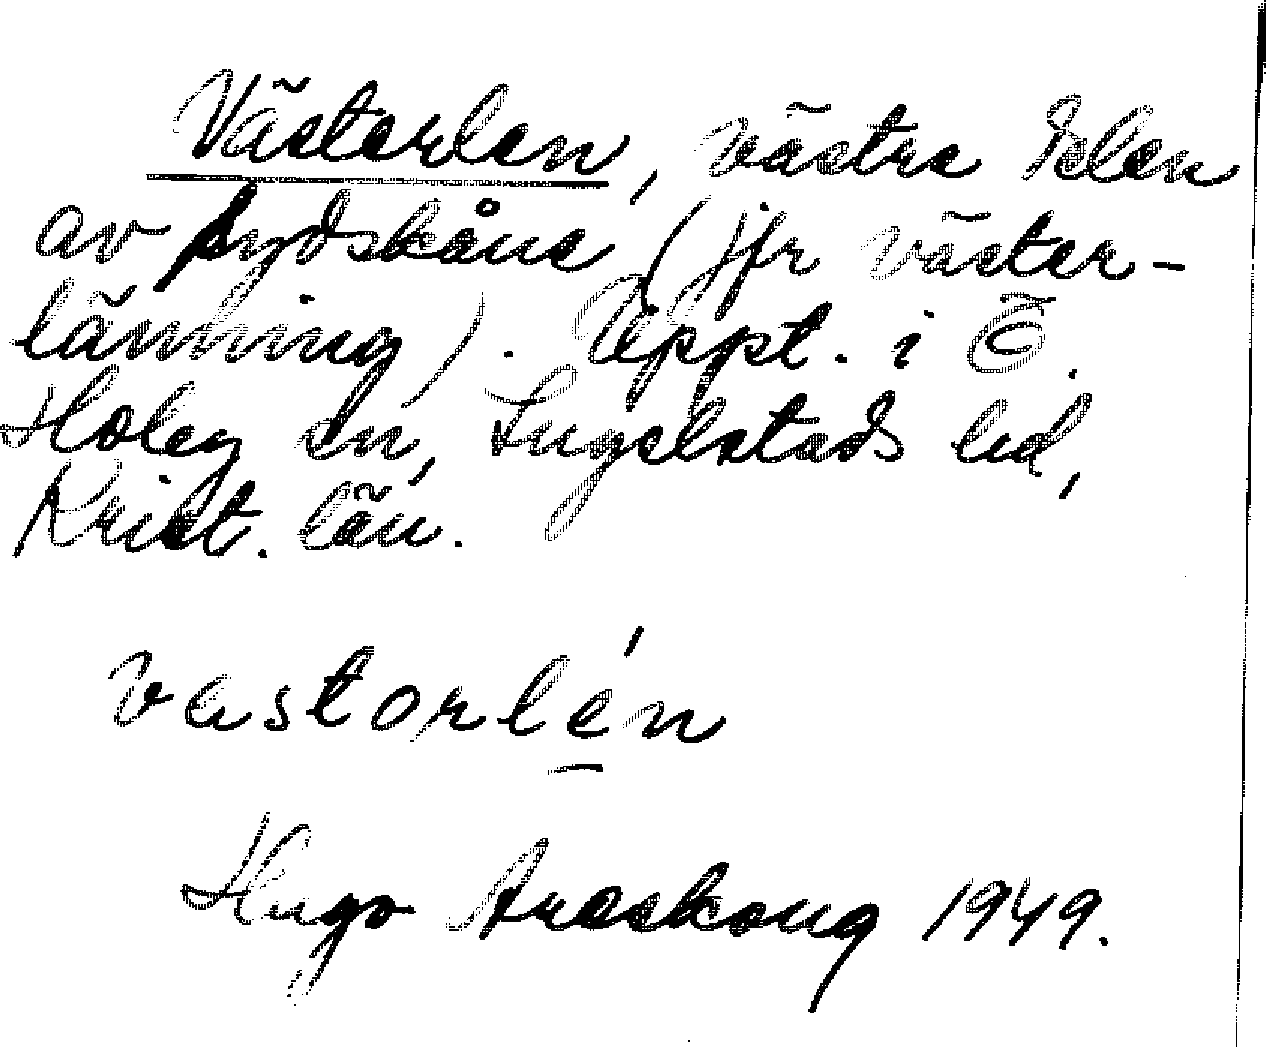 Västerlen, västra delen
av Sydskåne (jfr väster-
länning). Uppt. i Ö.
Hoby sn, Ingelstads hd,
Krist. län.
vastorlén
Hugo Areskoug 1949.